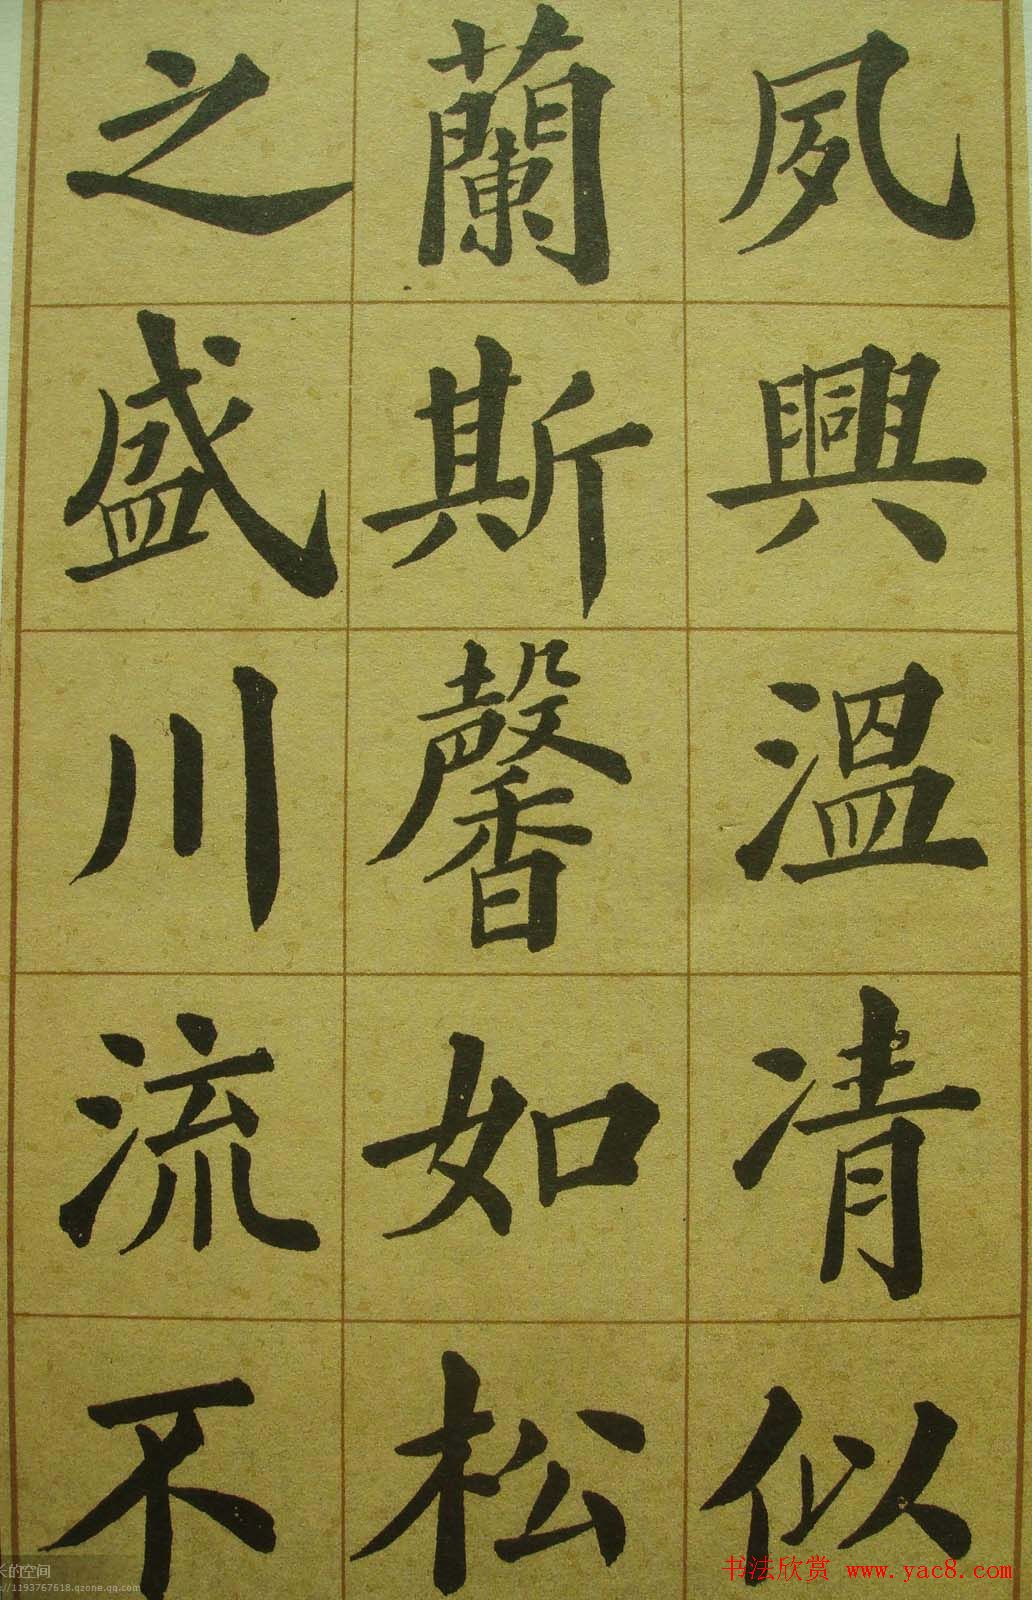 夙興溫凊似
蘭斯馨如松
之盛川流不
书法欣赏 www.yac8.com
长的空间
1193767618.qzone.qq.com